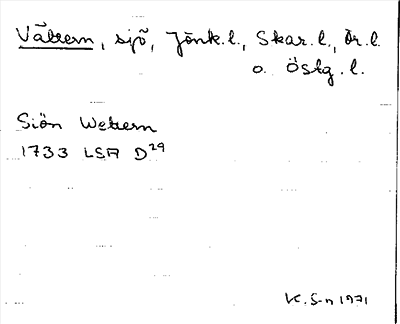 Vättern, sjö, Jönk.l., Skar.l., Ör.l.
o. Östg.l.
Siön Wettern
1733 LSA D29
K. S-n 1971